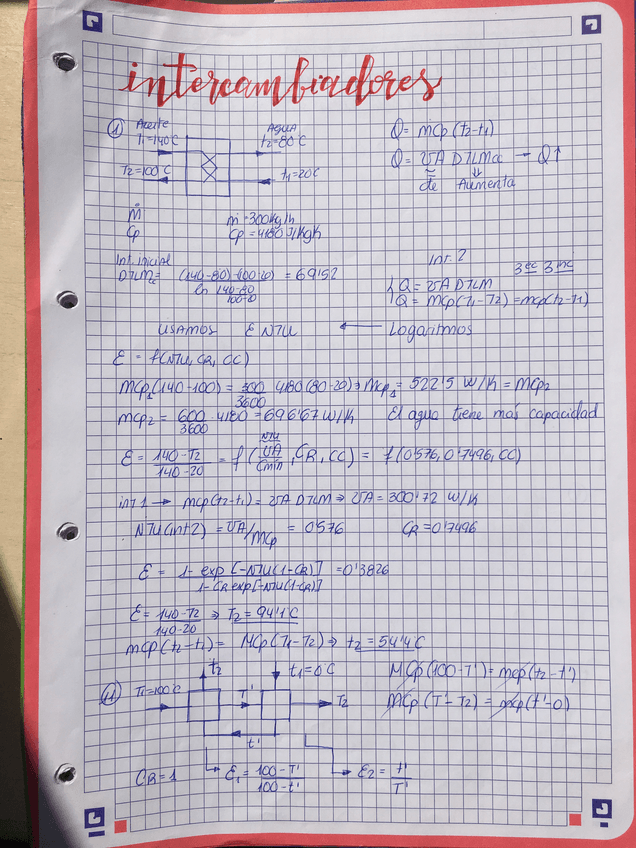 intercambiadores
① Aceite Agua Q = mcp(t2-t1)
t1=140°C t2=80°C
Q = UA DTLMcc → Q↑
T2=100°C t1=20°C de Aumenta
Ṁ ṁ=300kg/h
Cp Cp=4180 J/kgK
Int. inicial Int. 2
DTLMcc = (140-80)-(100-20) / ln 140-80/100-20 = 69'52 3 ec 3 inc
Q = UA DTLM
Q = MCp(T1-T2) = mcp(t2-t1)
USAMOS E NTU ← Logaritmos
E = f(NTU, CR, CC)
MCp1(140-100) = 300/3600 4180(80-20) → MCp1 = 522'5 W/K = MCp2
mcp2 = 600/3600 · 4180 = 696'67 W/K El agua tiene más capacidad
E = 140-T2/140-20 = f(NTU UA/Cmín, CR, CC) = f(0'576, 0'7496, CC)
int 1 → mcp(t2-t1) = UA DTLM ⇒ UA = 300'72 W/K
NTU(int2) = UA/MCp = 0'576 CR=0'7496
E = 1-exp[-NTU(1-CR)] / 1-CR exp[-NTU(1-CR)] = 0'3826
E = 140-T2/140-20 ⇒ T2 = 94'1°C
mcp(t2-t1) = MCp(T1-T2) ⇒ t2 = 54'4°C
⑪ T1=100°C t2 t1=0°C MCp(100-T') = mcp(t2-t')
T' T2 MCp(T'-T2) = mcp(t'-0)
t'
CR=1 E1 = 100-T'/100-t' E2 = t'/T'